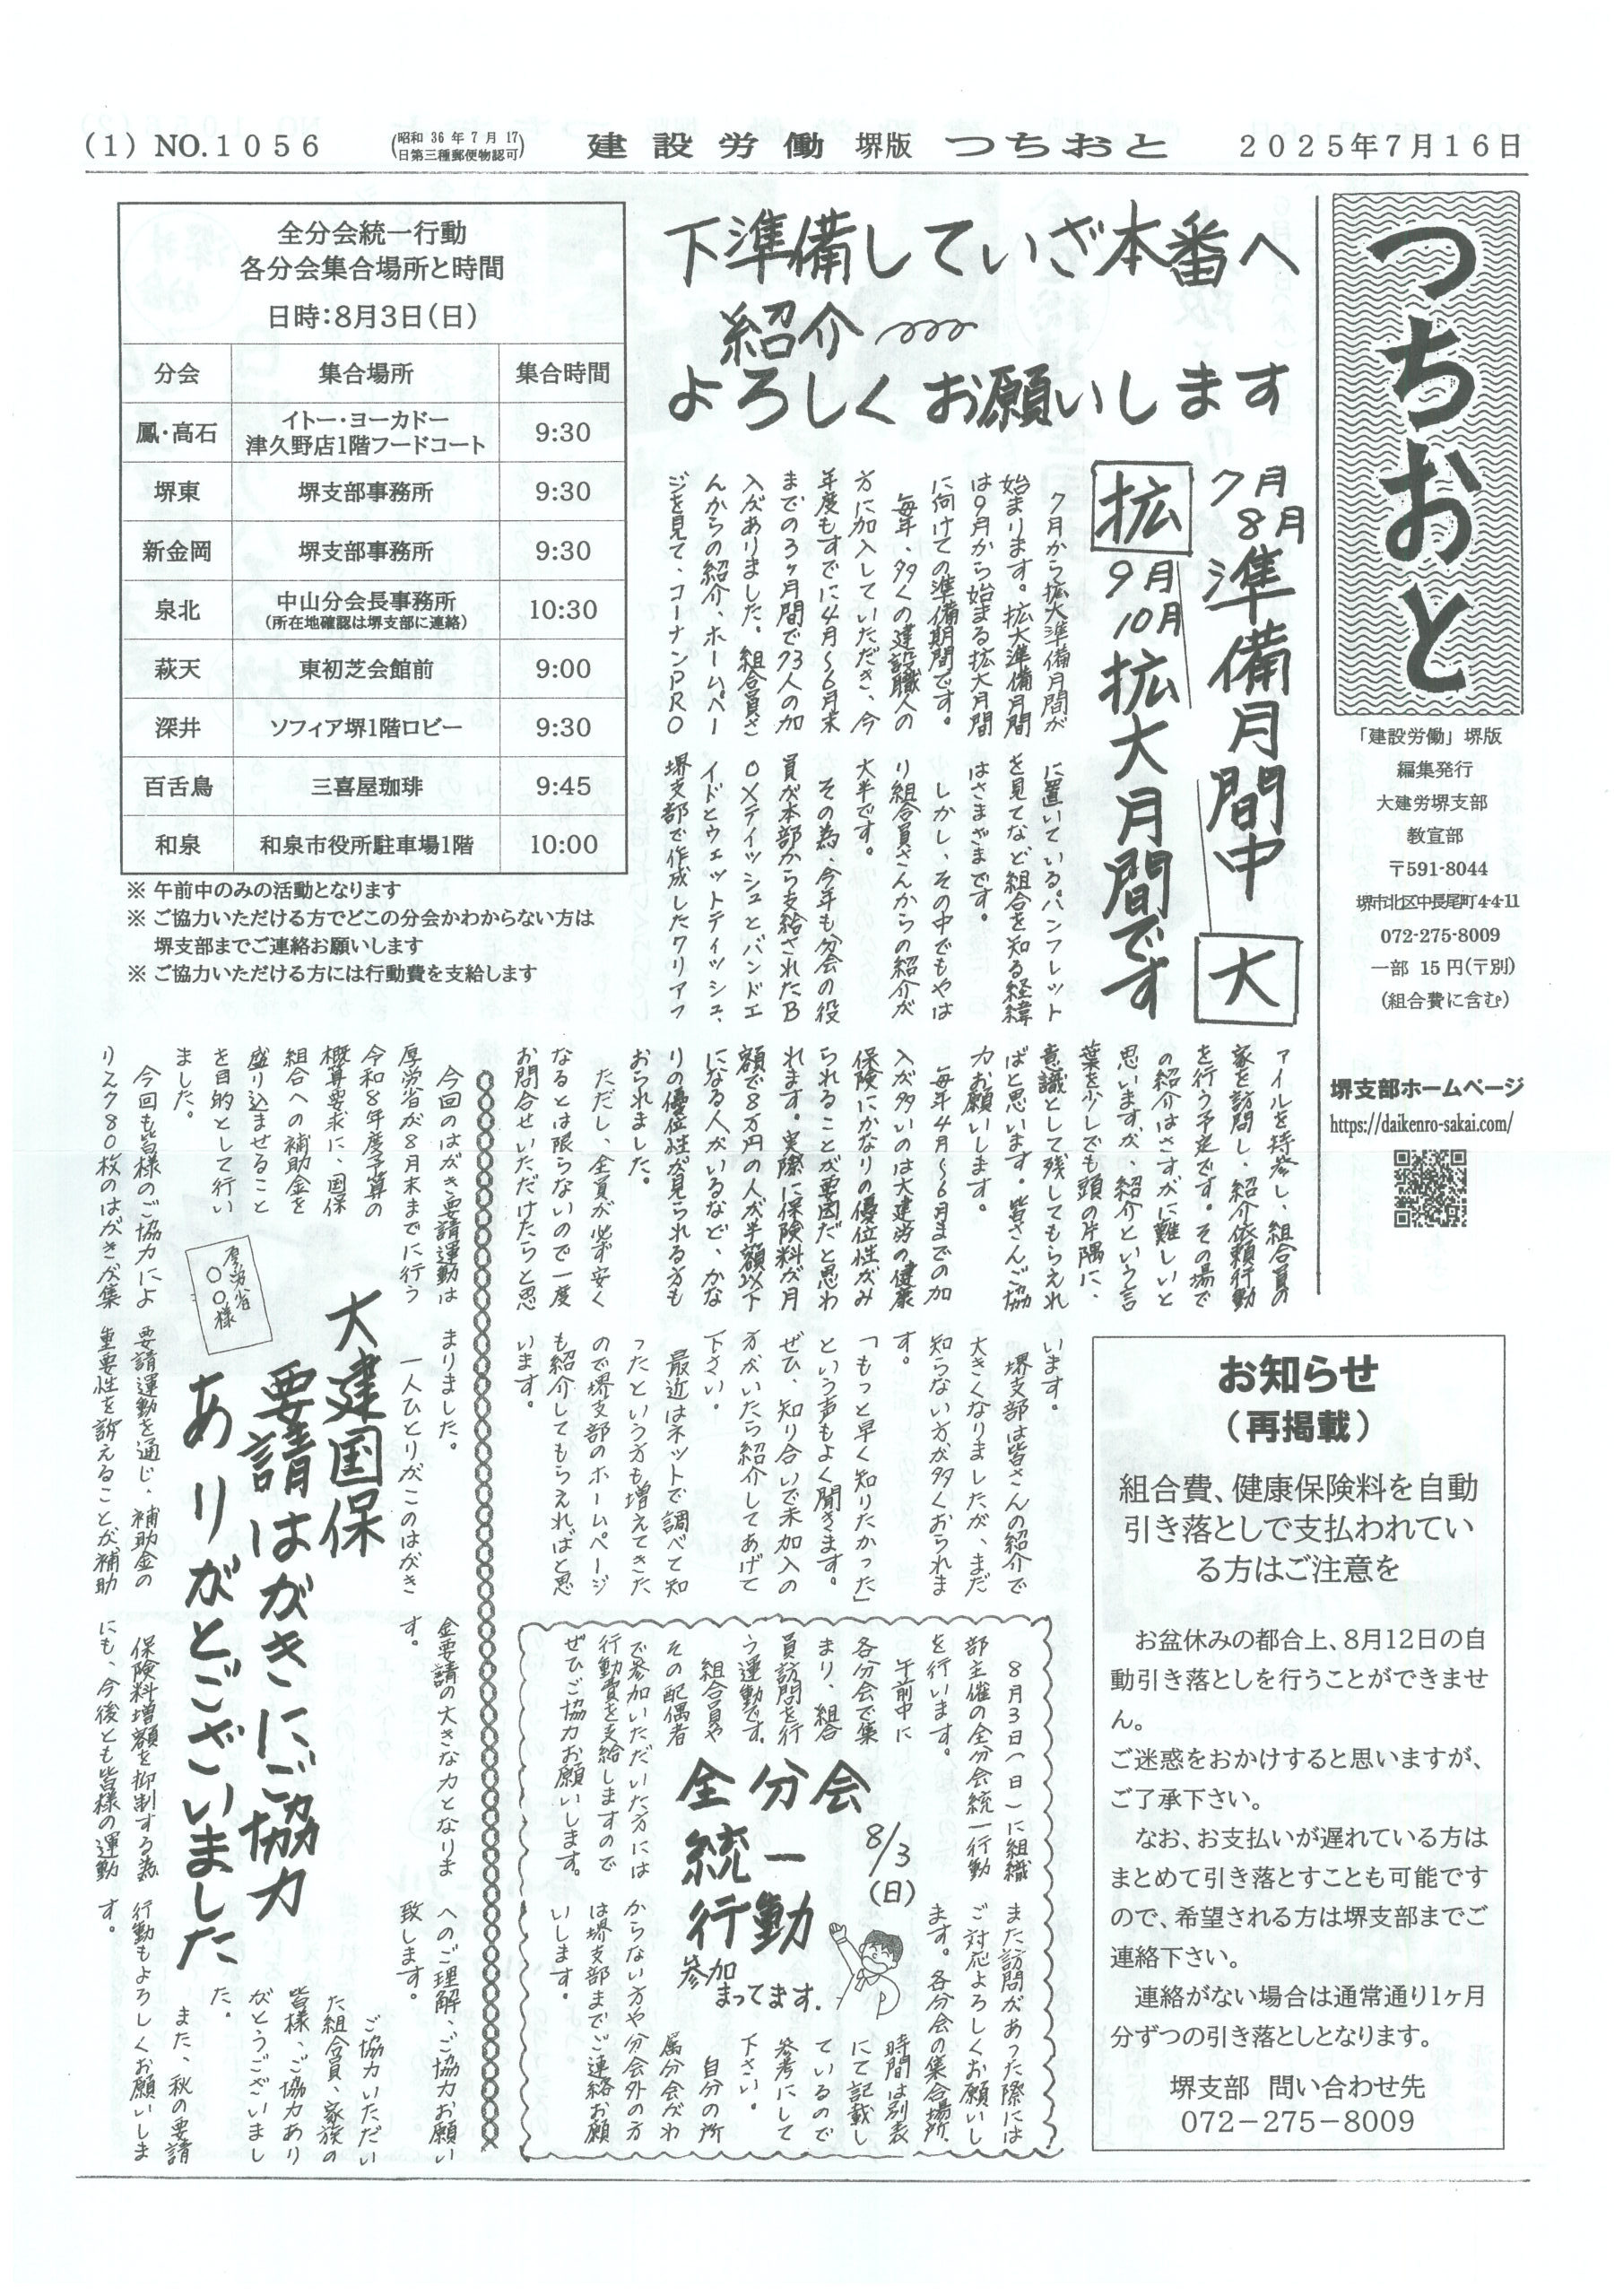 (1) NO.1056
(昭和 36 年 7 月 17
日第三種郵便物認可)
建設労働 堺版 つちおと
2025年7月16日
つちおと
「建設労働」堺版
編集発行
大建労堺支部
教宣部
〒591-8044
堺市北区中長尾町4-4-11
072-275-8009
一部 15 円(〒別)
(組合費に含む)
堺支部ホームページ
https://daikenro-sakai.com/
下準備していざ本番へ
紹介
よろしくお願いします
7月
8月
準備月間中
大
拡
9月
10月
拡大月間です
7月から拡大準備月間が
始まります。拡大準備月間
は9月から始まる拡大月間
に向けての準備期間です。
毎年、多くの建設職人の
方に加入していただき、今
年度もすでに4月〜6月末
までの3ヶ月間で73人の加
入がありました。組合員さ
んからの紹介、ホームペー
ジを見て、コーナンPRO
に置いているパンフレット
を見てなど組合を知る経緯
はさまざまです。
しかし、その中でもやは
り組合員さんからの紹介が
大半です。
その為、今年も分会の役
員が本部から支給されたB
OXティッシュとバンドエ
イドとウェットティッシュ、
堺支部で作成したクリアフ
ァイルを持参し、組合員の
家を訪問し、紹介依頼行動
を行う予定です。その場で
の紹介はさすがに難しいと
思いますが、紹介という言
葉を少しでも頭の片隅に、
意識として残してもらえれ
ばと思います。皆さんご協
力お願いします。
毎年4月〜6月までの加
入が多いのは大建労の健康
保険にかなりの優位性がみ
られることが要因だと思わ
れます。実際に保険料が月
額で8万円の人が半額以下
になる人がいるなど、かな
りの優位性が見られる方も
おられました。
ただし、全員が必ず安く
なるとは限らないので一度
お問合せいただけたらと思
います。
堺支部は皆さんの紹介で
大きくなりましたが、まだ
知らない方が多くおられま
す。
「もっと早く知りたかった」
という声もよく聞きます。
ぜひ、知り合いで未加入の
方がいたら紹介してあげて
下さい。
最近はネットで調べて知
ったという方も増えてきた
ので堺支部のホームページ
も紹介してもらえればと思
います。
全分会統一行動
各分会集合場所と時間
日時:8月3日(日)
分会 集合場所 集合時間
鳳・高石 イトー・ヨーカドー 津久野店1階フードコート 9:30
堺東 堺支部事務所 9:30
新金岡 堺支部事務所 9:30
泉北 中山分会長事務所 (所在地確認は堺支部に連絡) 10:30
萩天 東初芝会館前 9:00
深井 ソフィア堺1階ロビー 9:30
百舌鳥 三喜屋珈琲 9:45
和泉 和泉市役所駐車場1階 10:00
※ 午前中のみの活動となります
※ ご協力いただける方でどこの分会かわからない方は
堺支部までご連絡お願いします
※ ご協力いただける方には行動費を支給します
全分会
統一
行動
8/3
(日)
参加
まってます.
8月3日(日)に組織
部主催の全分会統一行動
を行います。
午前中に
各分会で集
まり、組合
員訪問を行
う運動です。
組合員や
その配偶者
で参加いただいた方には
行動費を支給しますので
ぜひご協力お願いします。
また訪問があった際には
ご対応よろしくお願いし
ます。各分会の集合場所、
時間は別表
にて記載し
ているので
参考にして
下さい。
自分の所
属分会がわ
からない方や分会外の方
は堺支部までご連絡お願
いします。
大建国保
要請はがきにご協力
ありがとうございました
厚労省
〇〇様
今回のはがき要請運動は
厚労省が8月末までに行う
令和8年度予算の
概算要求に、国保
組合への補助金を
盛り込ませること
を目的として行い
ました。
今回も皆様のご協力によ
り272780枚のはがきが集
まりました。
一人ひとりがこのはがき
要請運動を通じ、補助金の
重要性を訴えることが補助
金要請の大きな力となりま
す。
保険料増額を抑制する為
にも、今後とも皆様の運動
へのご理解、ご協力お願い
致します。
ご協力いただい
た組合員、家族の
皆様、ご協力あり
がとうございまし
た。
また、秋の要請
行動もよろしくお願いしま
す。
お知らせ
(再掲載)
組合費、健康保険料を自動
引き落としで支払われてい
る方はご注意を
お盆休みの都合上、8月12日の自
動引き落としを行うことができませ
ん。
ご迷惑をおかけすると思いますが、
ご了承下さい。
なお、お支払いが遅れている方は
まとめて引き落とすことも可能です
ので、希望される方は堺支部までご
連絡下さい。
連絡がない場合は通常通り1ヶ月
分ずつの引き落としとなります。
堺支部 問い合わせ先
072-275-8009